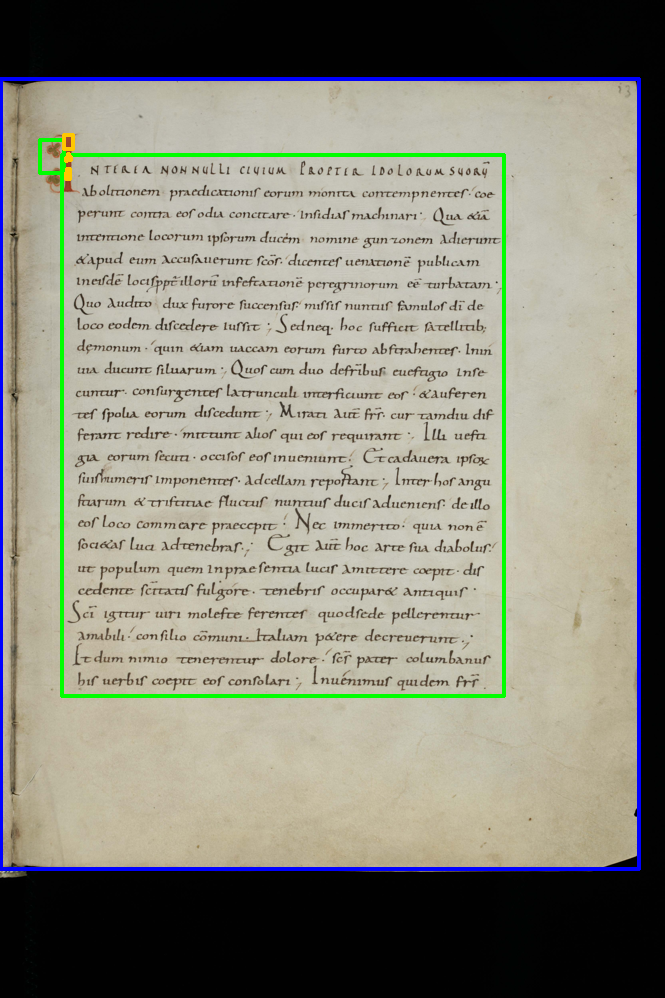 13
INTEREA NON NULLI CIVIUM PROPTER IDOLORUM SUORŪ
abolitionem praedicationis eorum monita contempnentes· coe
perunt contra eos odia concitare· insidias machinari· Qua &iā
intentione locorum ipsorum ducem nomine gunzonem adierunt
&apud eum accusauerunt scōs· dicentes uenationē publicam
in eisdē locis ppt illorū infestationē peregrinorum eē turbatam·,
Quo audito dux furore succensus· missis nuntiis famulos dī de
loco eodem discedere iussit·, Sed neq· hoc sufficit satellitib;
demonum· quin &iam uaccam eorum furto abstrahentes· In in
uia ducunt siluarum·, Quos cum duo de fr̄ibus euestigio inse
cuntur· consurgentes latrunculi interficiunt eos· &auferen
tes spolia eorum discedunt·, Mirati aut̄ fr̄s· cur tamdiu dif
ferant redire· mittunt alios qui eos requirant·, Illi uesti
gia eorum secuti· occisos eos inueniunt· Et cadauera ipsoꝝ
suis humeris imponentes· ad cellam reportant·, Inter hos angu
stiarum & tristitiae fluctus nuntius ducis adueniens· de illo
eos loco commeare praecepit· Nec immerito· quia non ē
soci&as luci ad tenebras·, Egit aut̄ hoc arte sua diabolus·
ut populum quem in praesentia lucis amittere coepit· dis
cedente scītatis fulgore· tenebris occupar& antiquis·
Scī igitur uiri moleste ferentes quod sede pellerentur
amabili· consilio cōmuni· Italiam p&ere decreuerunt·,
Et dum nimio tenerentur dolore· scs pater columbanus
his uerbis coepit eos consolari·, Inuenimus quidem fr̄s·